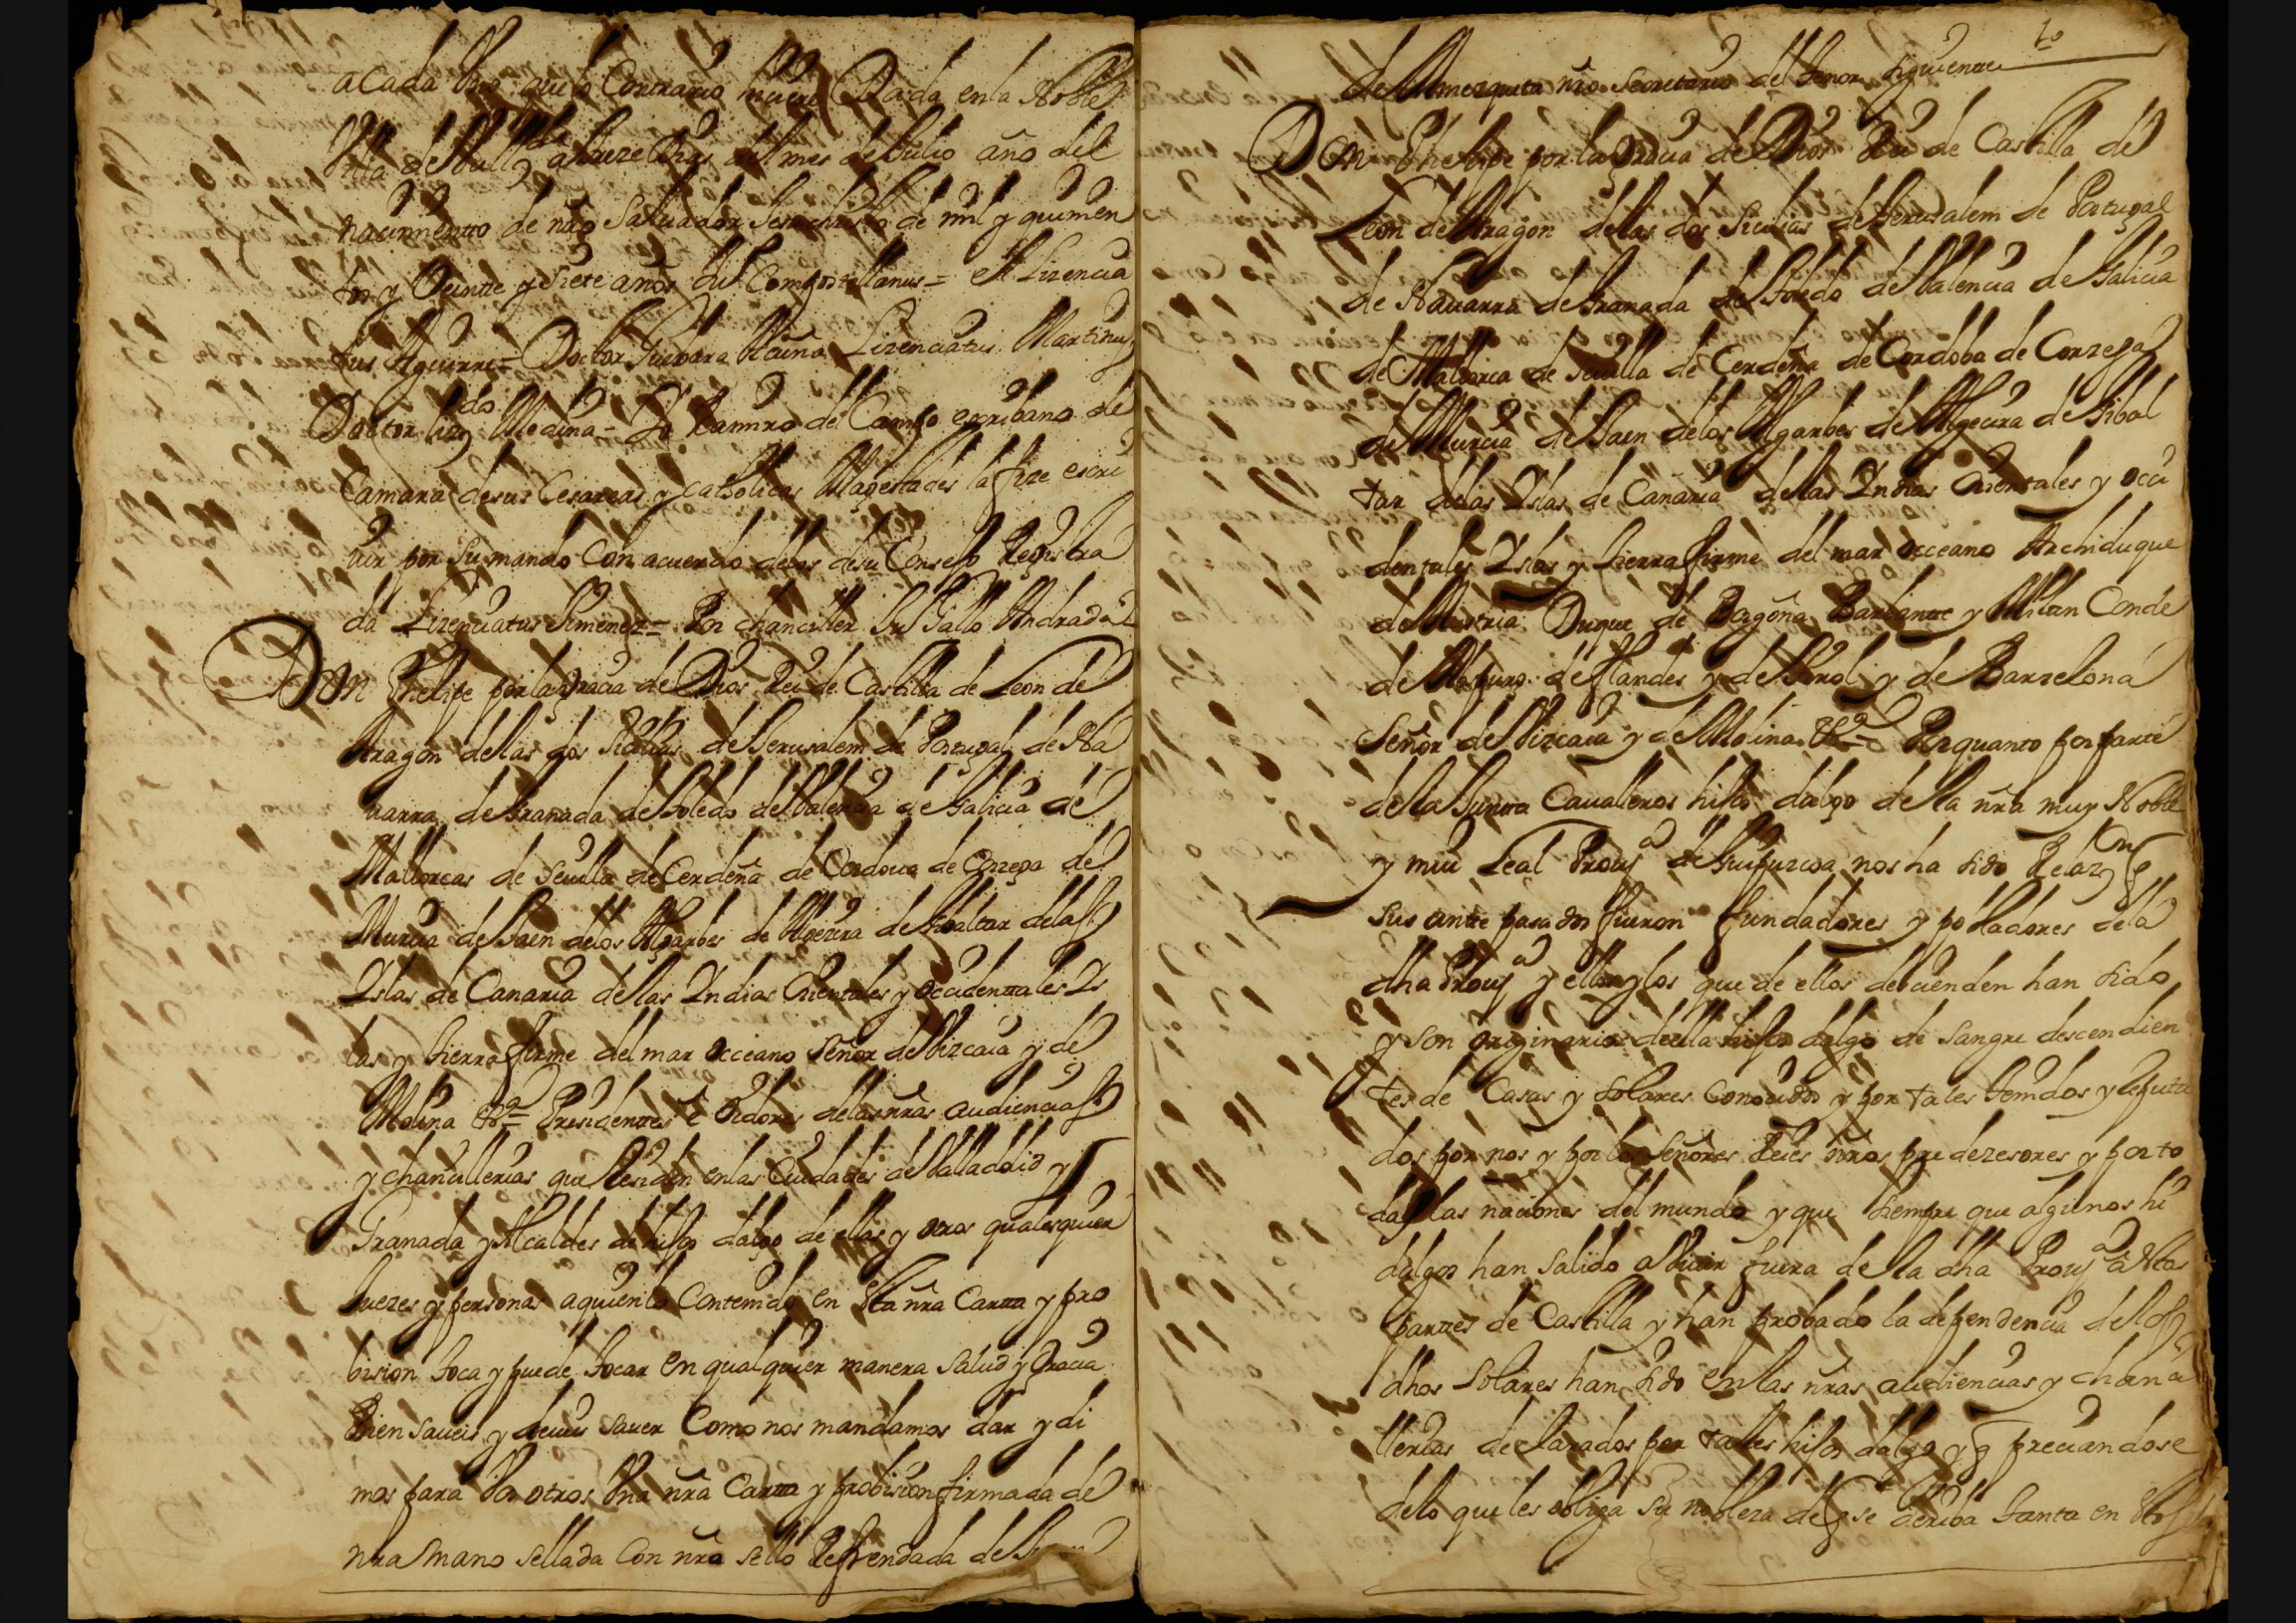 acada Uno que lo Contrario hiziere Dada en la Noble
Villa de Vall.d a treze Dias del mes de Julio año del
nacimiento de nrõ Saluador Jesuchristo de mil y quinien
tos y Veinte y siete años di Compostellanus = el Lizencia
tus Aguirre = Doctor Guebara Acuña Lizenciatus Martinus
Doctor liz.do Medina = Yo Ramiro del Campo escribano de
Camara de sus Cesareas y catholicas Magestades la fize escri
uir por su mando Con acuerdo de los de su Consejo Registra
da Lizenciatus Ximenez = Por chanciller Ju.o Gallo Andrada
Don Phelipe por la Gracia de Dios Rei de Castilla de Leon de
Aragon de las dos Sicilias de Jerusalem de Portugal de Na
uarra de Granada de Toledo de Valencia de Galicia de
Mallorcas de Seuilla de Cerdeña de Cordoua de Corzega de
Murcia de Jaen de los Algarbes de Algezira de Gibaltar de las
Yslas de Canaria de las Yndias Orientales y Occidentales Ys
las y tierra firme del mar Occeano Señor de Vizcaia y de
Molina &a = Presidentes e Oidores de las nrãs audiencias
y chancillerias que Residen en las Ciudades de Valladolid y
Granada y Alcaldes de hijos dalgo de ellas y otros qualesquier
Juezes y personas a quien lo Contenido en esta nrã Carta y pro
bision toca y puede tocar en qualquier manera salud y Gracia
Bien saueis y deueis sauer Como nos mandamos dar y di
mos para Vos otros Una nrã Carta y probision firmada de
nra mano sellada Con nrõ sello Refrendada de
10
de Amezqueta nrõ Secretario del tenor siguiente
Don Phelipe por la Gracia de Dios Rei de Castilla de
Leon de Aragon de las dos Sicilias de Jerusalem de Portugal
de Nauarra de Granada de Toledo de Valencia de Galicia
de Mallorca de Seuilla de Cerdeña de Cordoba de Corzega
de Murcia de Jaen de los Algarbes de Algecira de Gibal
tar de las Yslas de Canaria de las Yndias Orientales y Occi
dentales Yslas y tierra firme del mar Occeano Archiduque
de Austria Duque de Borgoña Barbante y Milan Conde
de Abspurg de Flandes y de Tirol y de Barzelona
Señor de Vizcaia y de Molina &a = Por quanto por parte
de la Junta Caualleros hijos dalgo de la nrã muy Noble
y mui Leal Prou.a de Guipuzcoa nos ha sido Relaz.on q
sus ante pasados fueron fundadores y pobladores de la
dha Prou.a y ellos y los que de ellos decienden han sido
y son originarios de ella hijos dalgo de sangre descendien
tes de Casas y solares conocidos y por tales tenidos y reputa
dos por nos y por los Señores Reies nrõs predezesores y por to
das las naciones del mundo y que siempre que algunos hi
dalgos han salido a Viuir fuera de la dha Prou.a a otras
partes de Castilla y han probado la dependencia de los
dhos solares han sido en las nrãs audiencias y chanci
llerias declarados por tales hijos dalgo y q preciandose
de lo que les obliga su nobleza de q se deriba tanta en